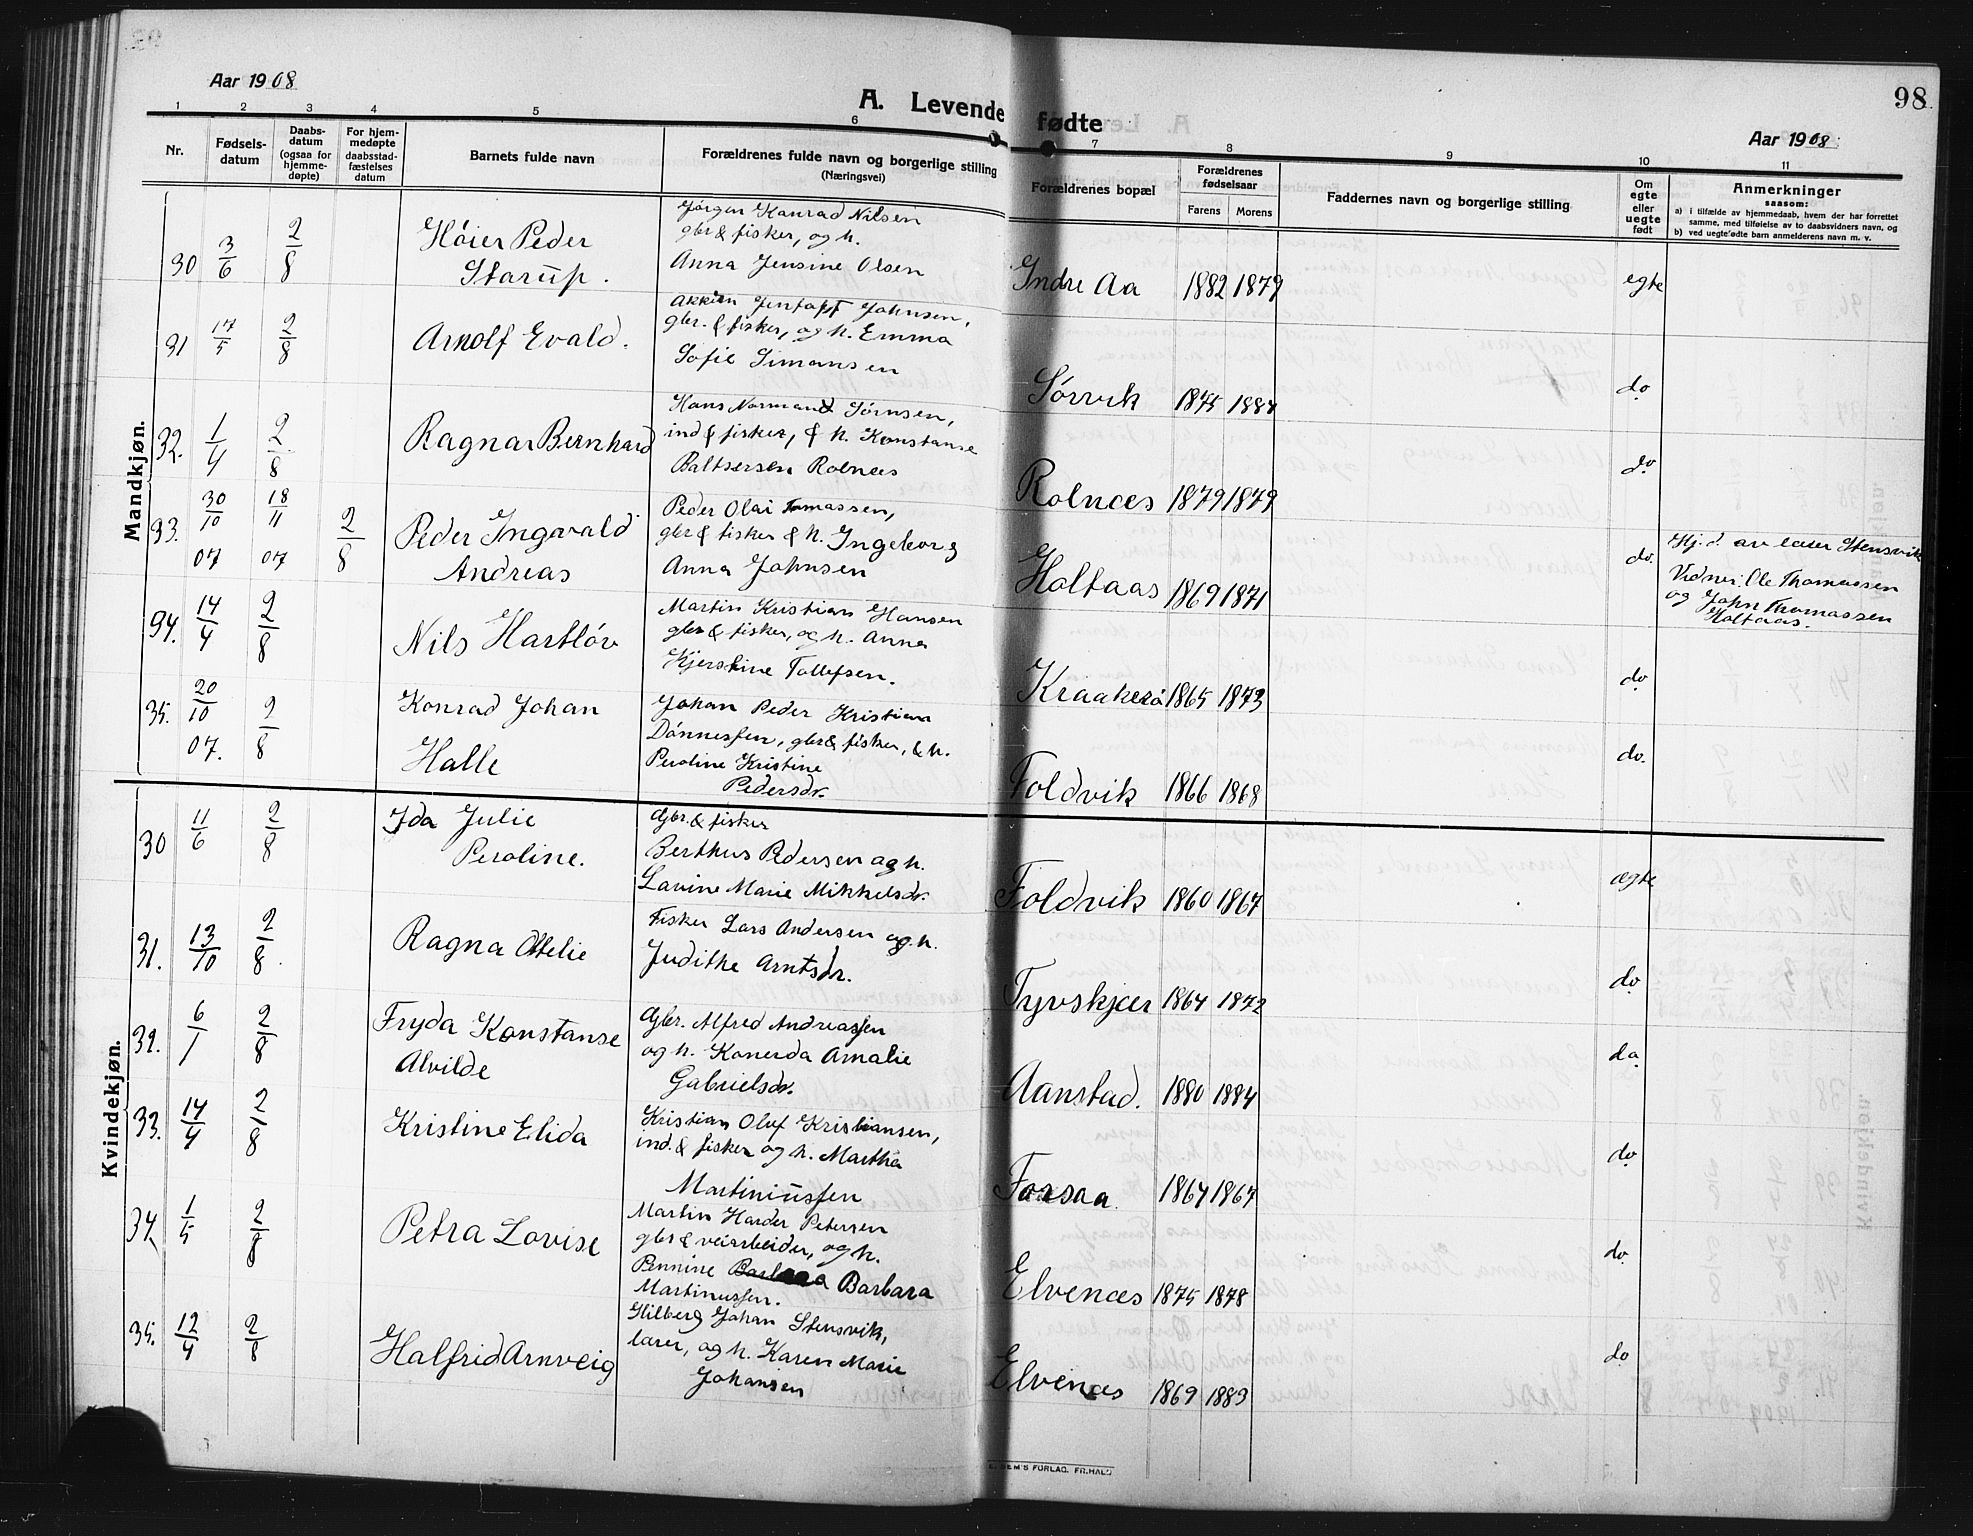 Aar 1908
98
A. Levende fødte
Aar 1908
1 2 3 4 5 6 7 8 9 10 11
Nr.
Fødsels-
datum
Daabs-
datum
(ogsaa for
hjemme-
døpte)
For hjem-
medøpte
daabsstad-
fæstelses
datum
Barnets fulde navn
Forældrenes fulde navn og borgerlige stilling
(Næringsvei)
Forældrenes bopæl
Forældrenes
fødselsaar
Farens Morens
Faddernes navn og borgerlige stilling
Om
egte
eller
uegte
født
Anmerkninger
saasom:
a) i tilfælde av hjemmedaab, hvem der har forrettet
samme, med tilføielse av to daabsvidners navn, og
b) ved uegte fødte barn anmelderens navn m. v.
Mandkjøn.
30 3/6 2/8 Høier Peder
Starup.
Jørgen Konrad Nilsen
gbr & fisker, og h.
Anna Jensine Olsen
Indre Aa 1882 1879 egte
31 17/5 2/8 Arnolf Evald.
Johnsen,
gbr. & fisker, og h. Emma
Sofie Simonsen
Sørvik 1875 1884 do
32. 1/4 2/8 Ragnar Bernhard
Hans Normand Jørnsen,
ind & fisker, & h. Konstanse
Baltsersen Rolnæs
Rolnæs 1879 1879 do
33. 30/10 07 18/11 07 2/8 Peder Ingvald
Andreas
Peder Olai Tomassen,
gbr & fisker & h. Ingeborg
Anna Johnsen
Holtaas 1869 1871 do.
Hj. d. av lærer Stensvik
Vidner: Ole Thomassen
og John Thomassen
Holtaas.
34. 14/4 2/8 Nils Hartløv
Martin Kristian Hansen
gbr & fisker, og h. Anna
Kjerstine Tollefsen.
Kraakerø 1865 1873 do
35. 20/10 07. 2/8 Konrad Johan
Halle
Johan Peder Kristian
Dønnessen, gbr & fisker, & h.
Peroline Kristine
Pedersdr.
Foldvik 1866 1868 do.
Kvindekjøn.
30 11/6 2/8 Ida Julie
Peroline.
Gbr. & fisker
Berthus Pedersen og h.
Lavine Marie Mikkelsdr.
Foldvik 1860 1867 ægte
31. 13/10 2/8. Ragna Ottelie
Fisker Lars Andersen og h.
Judithe Arntsdr.
Tyvskjær 1864 1872 do
32. 6/1 2/8 Fryda Konstanse
Alvilde
Gbr. Alfred Andreassen
og h. Konerda Amalie
Gabrielsdr.
Aanstad. 1880 1884 do
33. 14/4 2/8 Kristine Elida
Kristian Oluf Kristiansen,
ind. & fisker og h. Martha
Martiniussen
Forsaa. 1864 1867 do
34. 1/5 2/8 Petra Lovise
Martin Harder Petersen
gbr & veiarbeider, og h.
Pernnine Barbara Barbara
Martinussen.
Elvenæs 1875 1878 do
35. 12/4 2/8 Halfrid Arnveig
Hilberg Johan Stensvik,
lærer, og h. Karen Marie
Johansen
Elvenæs 1869 1883 do
SEM'S FORLAG. FR.HALD